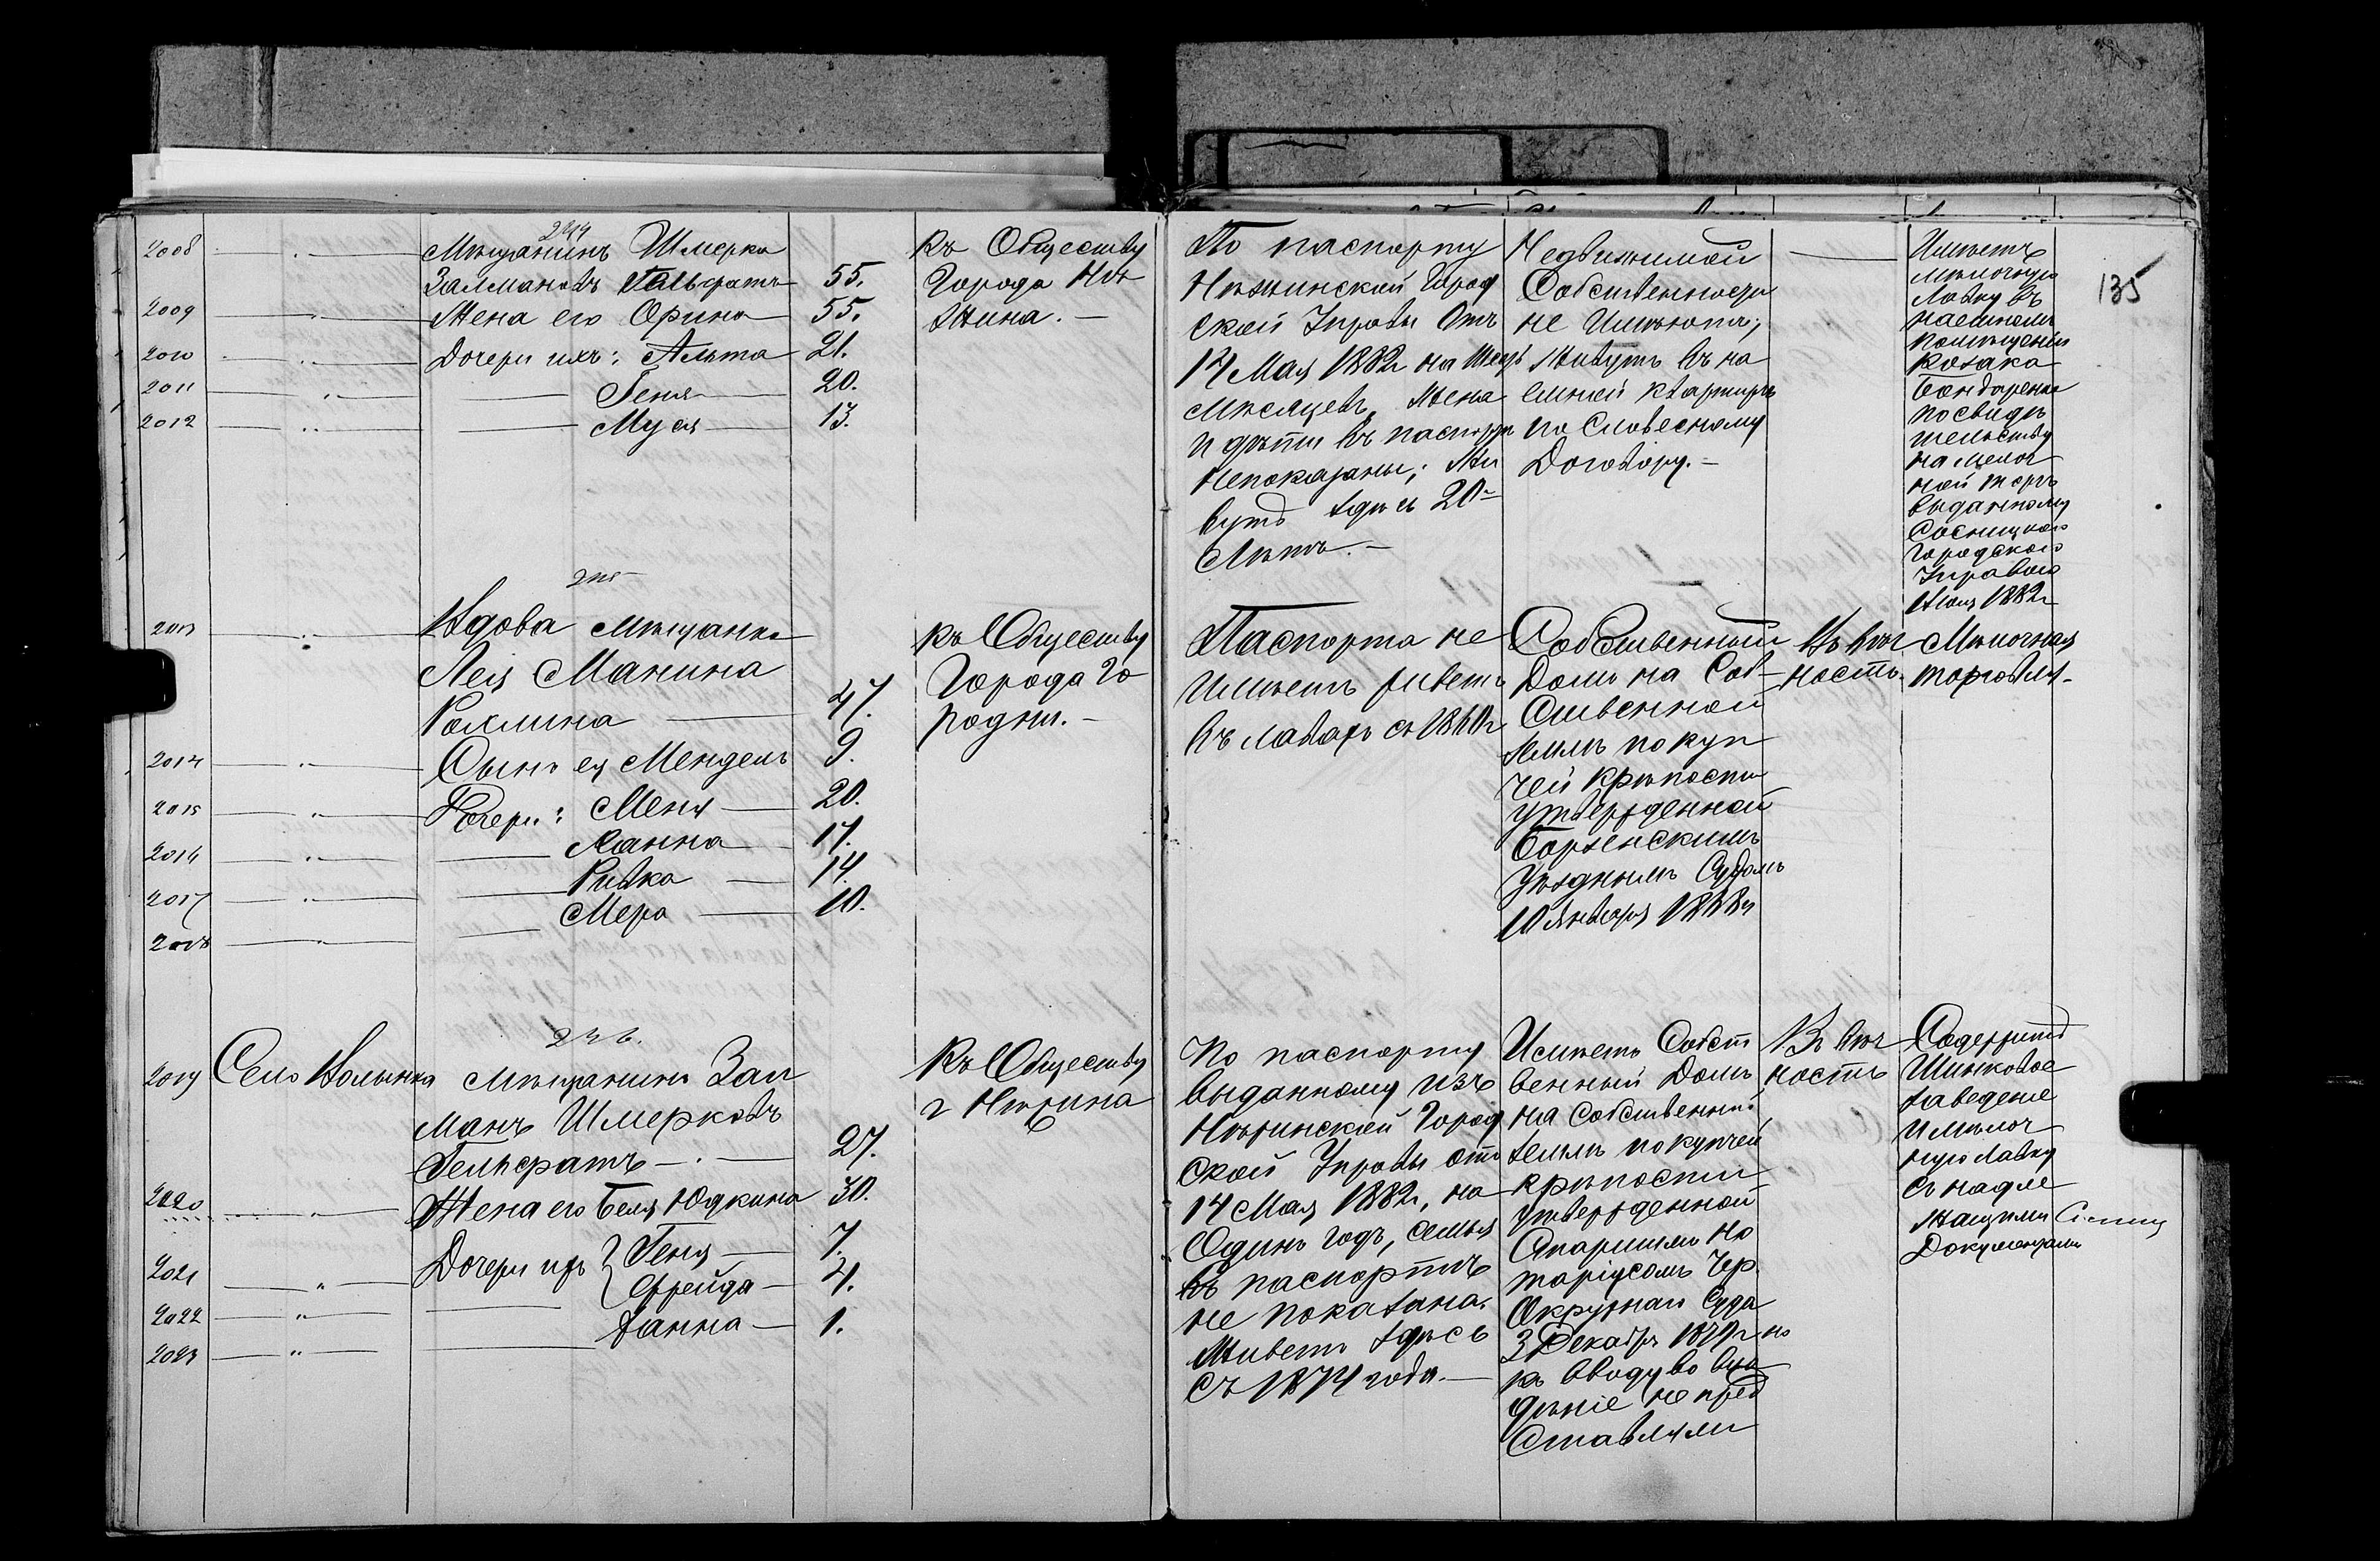 244
2008 Мѣщанинъ Шмерка
Залмановъ Гельфатъ 55.
2009 Жена его Фрина 55.
2010 Дочери ихъ: Алта 21.
2011 Геня 20.
2012 Муся 13.
Къ Обществу
Города Нѣ
жина. —
По паспорту
Нѣжинской Город
ской Управы Отъ
14 Мая 1882 на Шесть
Мѣсяцевъ, Жена
и дѣти въ паспортѣ
Непоказаны; Жи
вутъ здѣсь 20
Лѣтъ. —
Недвижимой
Собственности
не Имѣютъ;
Живутъ въ на
емной квартирѣ
по Словесному
Договору. —
Имѣетъ
мѣлочную
Лавку въ
наемномъ
помѣщеніи
Козака
Бондаренка
по свидѣ
тельству
на мелоч
ной торгъ
выданному
Сосницкою
Городскою
Управою
1882г
135
245
2013 Вдова Мѣщанка
Лея Манина
Рохлина 47.
2014 Сынъ ея Мендель 9.
2015 Дочери: Меня 20.
2016 Ханна 17.
2017 Ривка 14.
2018 Мера 10.
Къ Обществу
Города Го
родни. —
Паспорта не
Имѣетъ живетъ
въ Лавахъ съ 1860г
Собственный
Домъ на Соб
ственной
Землѣ по куп
чей крѣпости
утвержденной
Борзенскимъ
Уѣзднымъ Судомъ
10 Января 1868г
Въ вѣч
ность.
Мѣлочная
торговля.
246.
2019 Село Волынка Мѣщанинъ Зал
манъ Шмерковъ
Гельфатъ 27.
2020 Жена его Беля Юдкина 30.
2021 Дочери ихъ Геня 7.
2022 Фрейда 4.
2023 Ханна 1.
Къ Обществу
г Нѣжина
По паспорту
Выданному изъ
Нѣжинской Город
ской Управы отъ
14 Мая 1882г, на
Одинъ годъ, семья
въ паспортѣ
не показана.
Живетъ здѣсь
съ 1874 года. —
Имѣетъ Собст
венный Домъ
на Собственной
Землѣ по купчей
крѣпости
утвержденной
Старшимъ Но
таріусомъ Чер.
Окружнаго Суда
3 Декабря 1879г но
къ вводу во вла
дѣніе не пред
ставляли
Въ вѣч
ность
Содержитъ
Шинковое
заведеніе
и мѣлоч
ную Лавку
съ надле
жащими
Документами